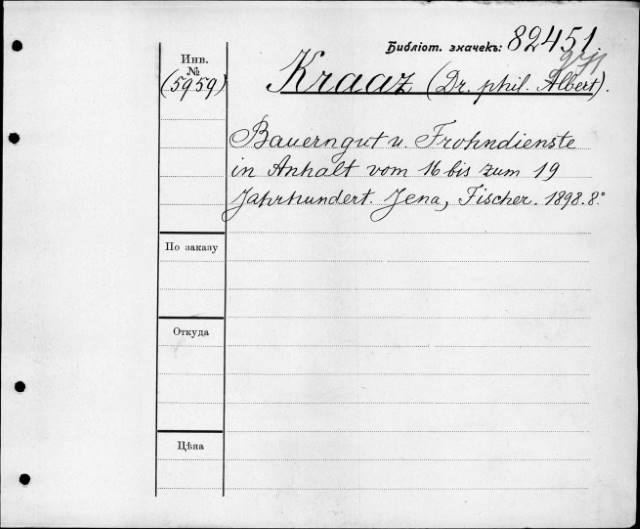 Библіот. значекъ: 82451
Инв.
№
(5959)
Kraaz (Dr. phil. Albert).
Bauerngut u. Frohndienste
in Anhalt vom 16 bis zum 19
Jahrhundert. Jena, Fischer. 1898. 8°
По заказу
Откуда
Цѣна